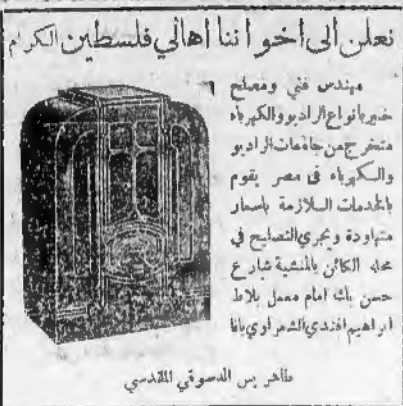 نعلن الى اخواننا اهالي فلسطين الكرام
مهندس فني ومصلح
خبير بانواع الراديو والكهرباء
متخرج من جامعات الراديو
والكهرباء في مصر يقوم
بالخدمات اللازمة باسعار
متهاودة ويجري التصليح في
محله الكائن بالمنشية شارع
حسن بك امام معمل بلاط
ابراهيم افندي الشعراوي بيافا
طاهر يس الدسوقي المقدسي